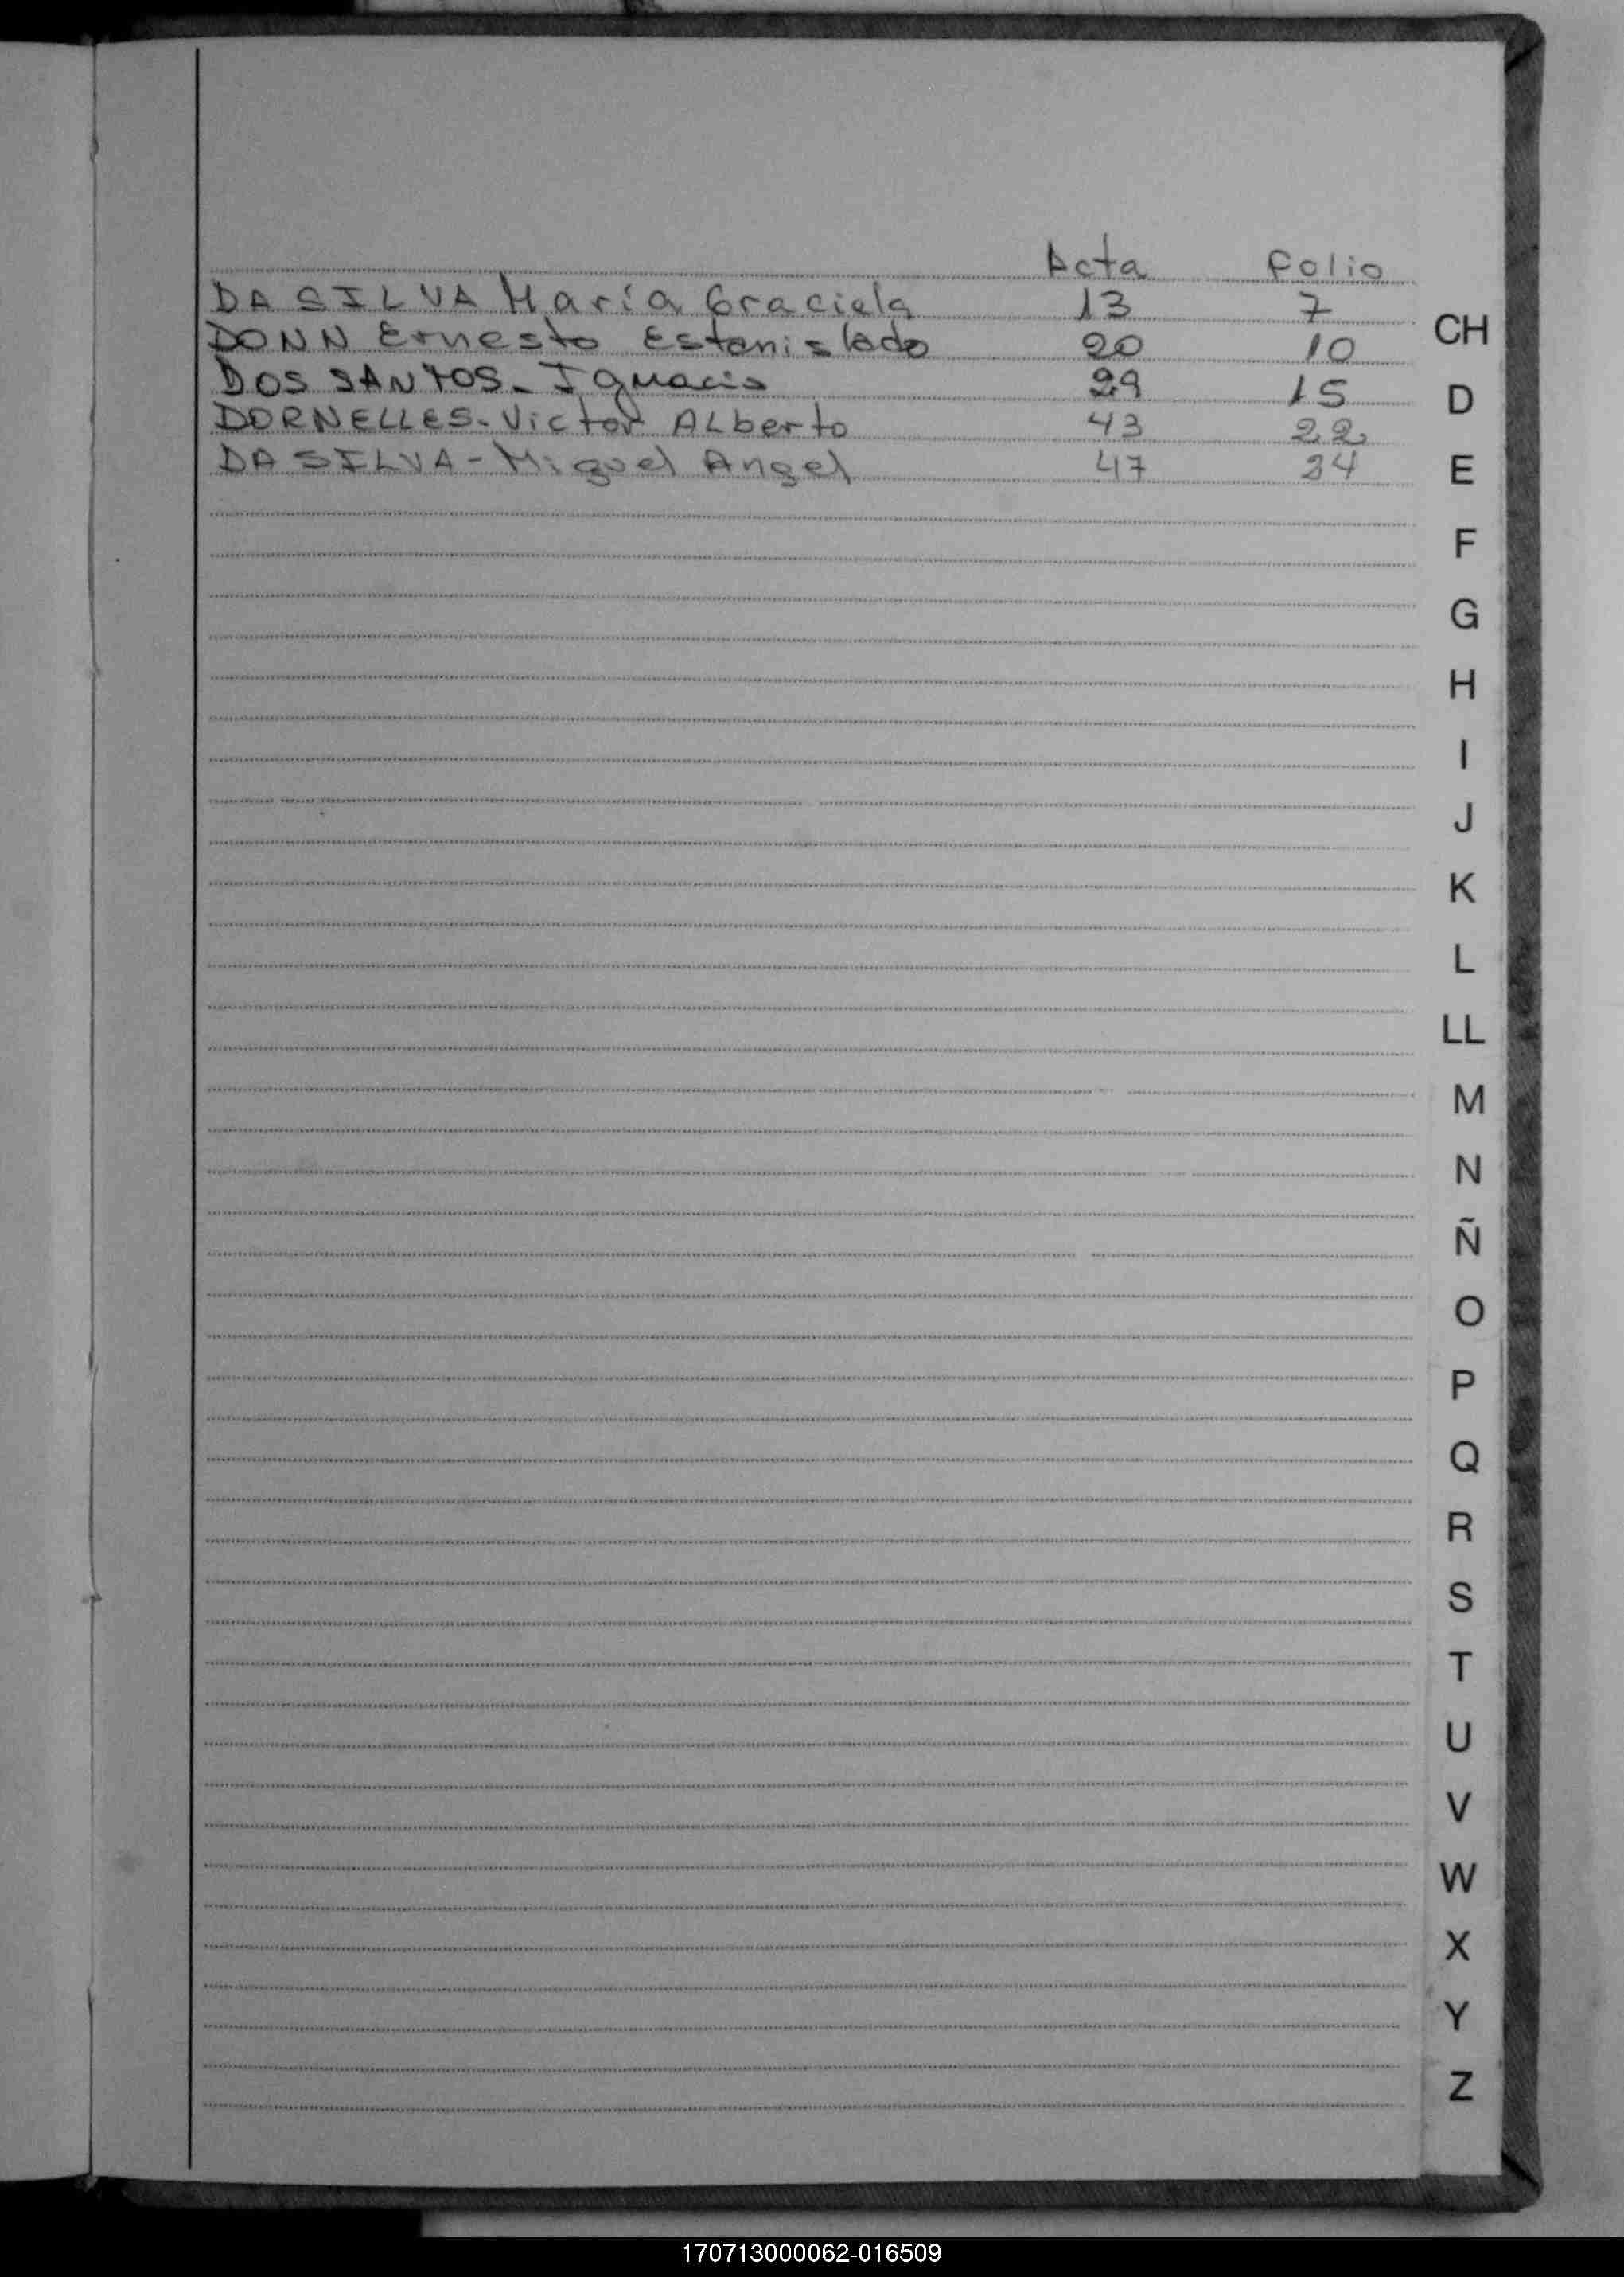 Acta Folio
DA SILVA María Graciela 13 7
DONN Ernesto Estanislado 20 10
DOS SANTOS - Ignacio 29 15
DORNELLES - Victor ALberto 43 22
DA SILVA - Miguel Angel 47 24
CH
D
E
F
G
H
I
J
K
L
LL
M
N
Ñ
O
P
Q
R
S
T
U
V
W
X
Y
Z
170713000062-016509